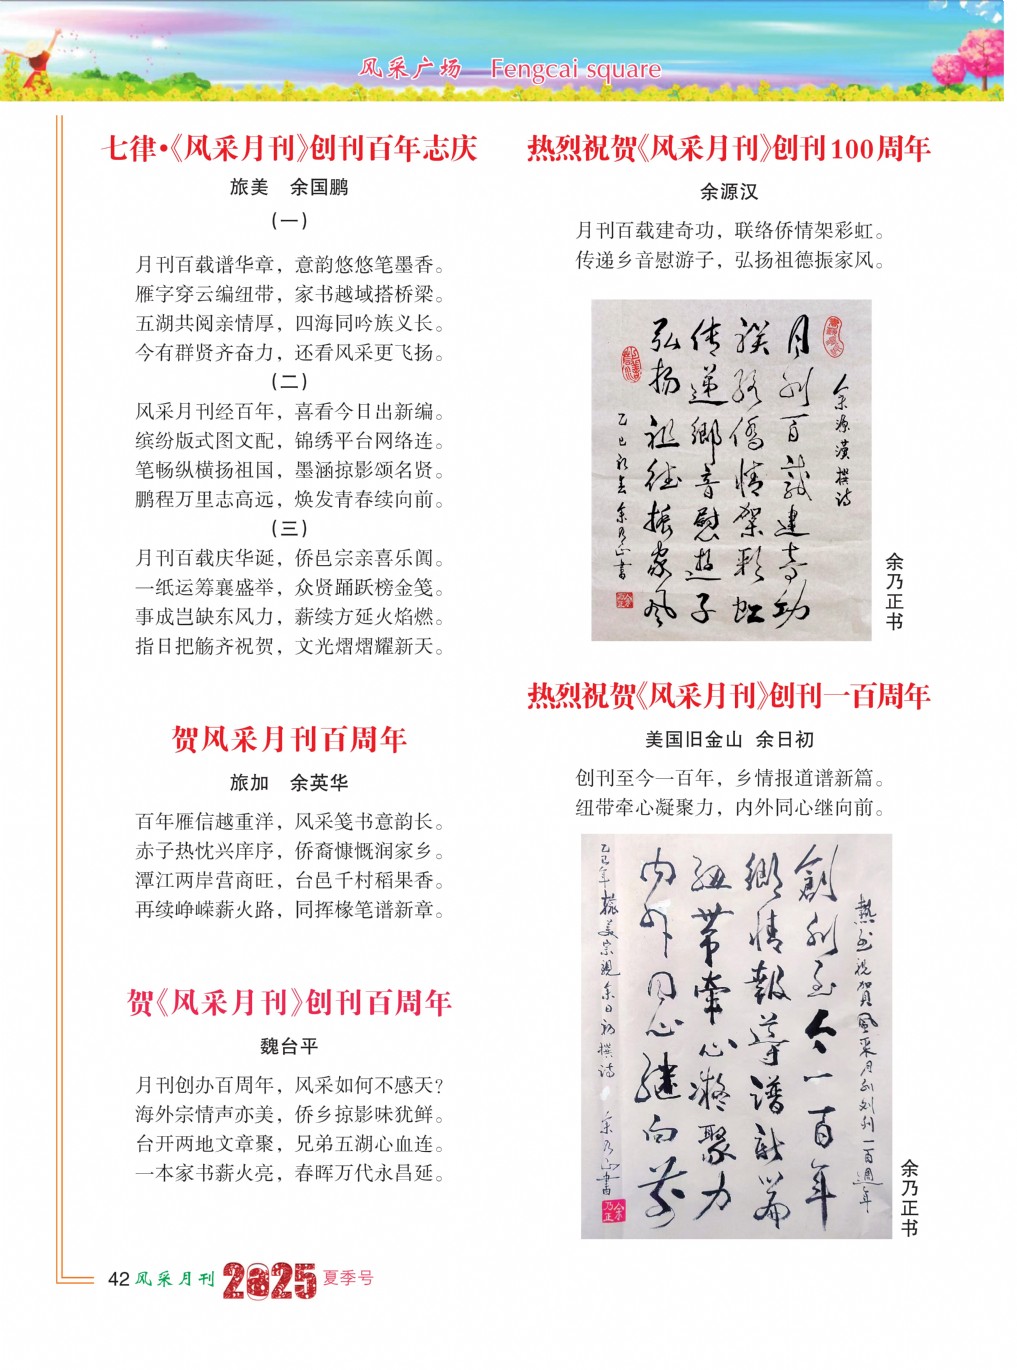 风采广场 Fengcai square
七律·《风采月刊》创刊百年志庆
旅美 余国鹏
(一)
月刊百载谱华章，意韵悠悠笔墨香。
雁字穿云编纽带，家书越域搭桥梁。
五湖共阅亲情厚，四海同吟族义长。
今有群贤齐奋力，还看风采更飞扬。
(二)
风采月刊经百年，喜看今日出新编。
缤纷版式图文配，锦绣平台网络连。
笔畅纵横扬祖国，墨涵掠影颂名贤。
鹏程万里志高远，焕发青春续向前。
(三)
月刊百载庆华诞，侨邑宗亲喜乐阗。
一纸运筹襄盛举，众贤踊跃榜金笺。
事成岂缺东风力，薪续方延火焰燃。
指日把觞齐祝贺，文光熠熠耀新天。
贺风采月刊百周年
旅加 余英华
百年雁信越重洋，风采笺书意韵长。
赤子热忱兴庠序，侨裔慷慨润家乡。
潭江两岸营商旺，台邑千村稻果香。
再续峥嵘薪火路，同挥椽笔谱新章。
贺《风采月刊》创刊百周年
魏台平
月刊创办百周年，风采如何不感天？
海外宗情声亦美，侨乡掠影味犹鲜。
台开两地文章聚，兄弟五湖心血连。
一本家书薪火亮，春晖万代永昌延。
热烈祝贺《风采月刊》创刊100周年
余源汉
月刊百载建奇功，联络侨情架彩虹。
传递乡音慰游子，弘扬祖德振家风。
余源漢撰诗
月刊百载建奇功
联络僑情架彩虹
传递鄉音慰遊子
弘扬祖德振家风
乙巳初夏余乃正書
余乃正书
热烈祝贺《风采月刊》创刊一百周年
美国旧金山 余日初
创刊至今一百年，乡情报道谱新篇。
纽带牵心凝聚力，内外同心继向前。
熱烈祝賀風采月刊创刊一百週年
創刊至今一百年
鄉情報導譜新篇
纽带牵心凝聚力
内外同心继向前
乙巳年旅美宗親余日初撰诗 余乃正書
余乃正
余乃正书
42 风采月刊 2025 夏季号